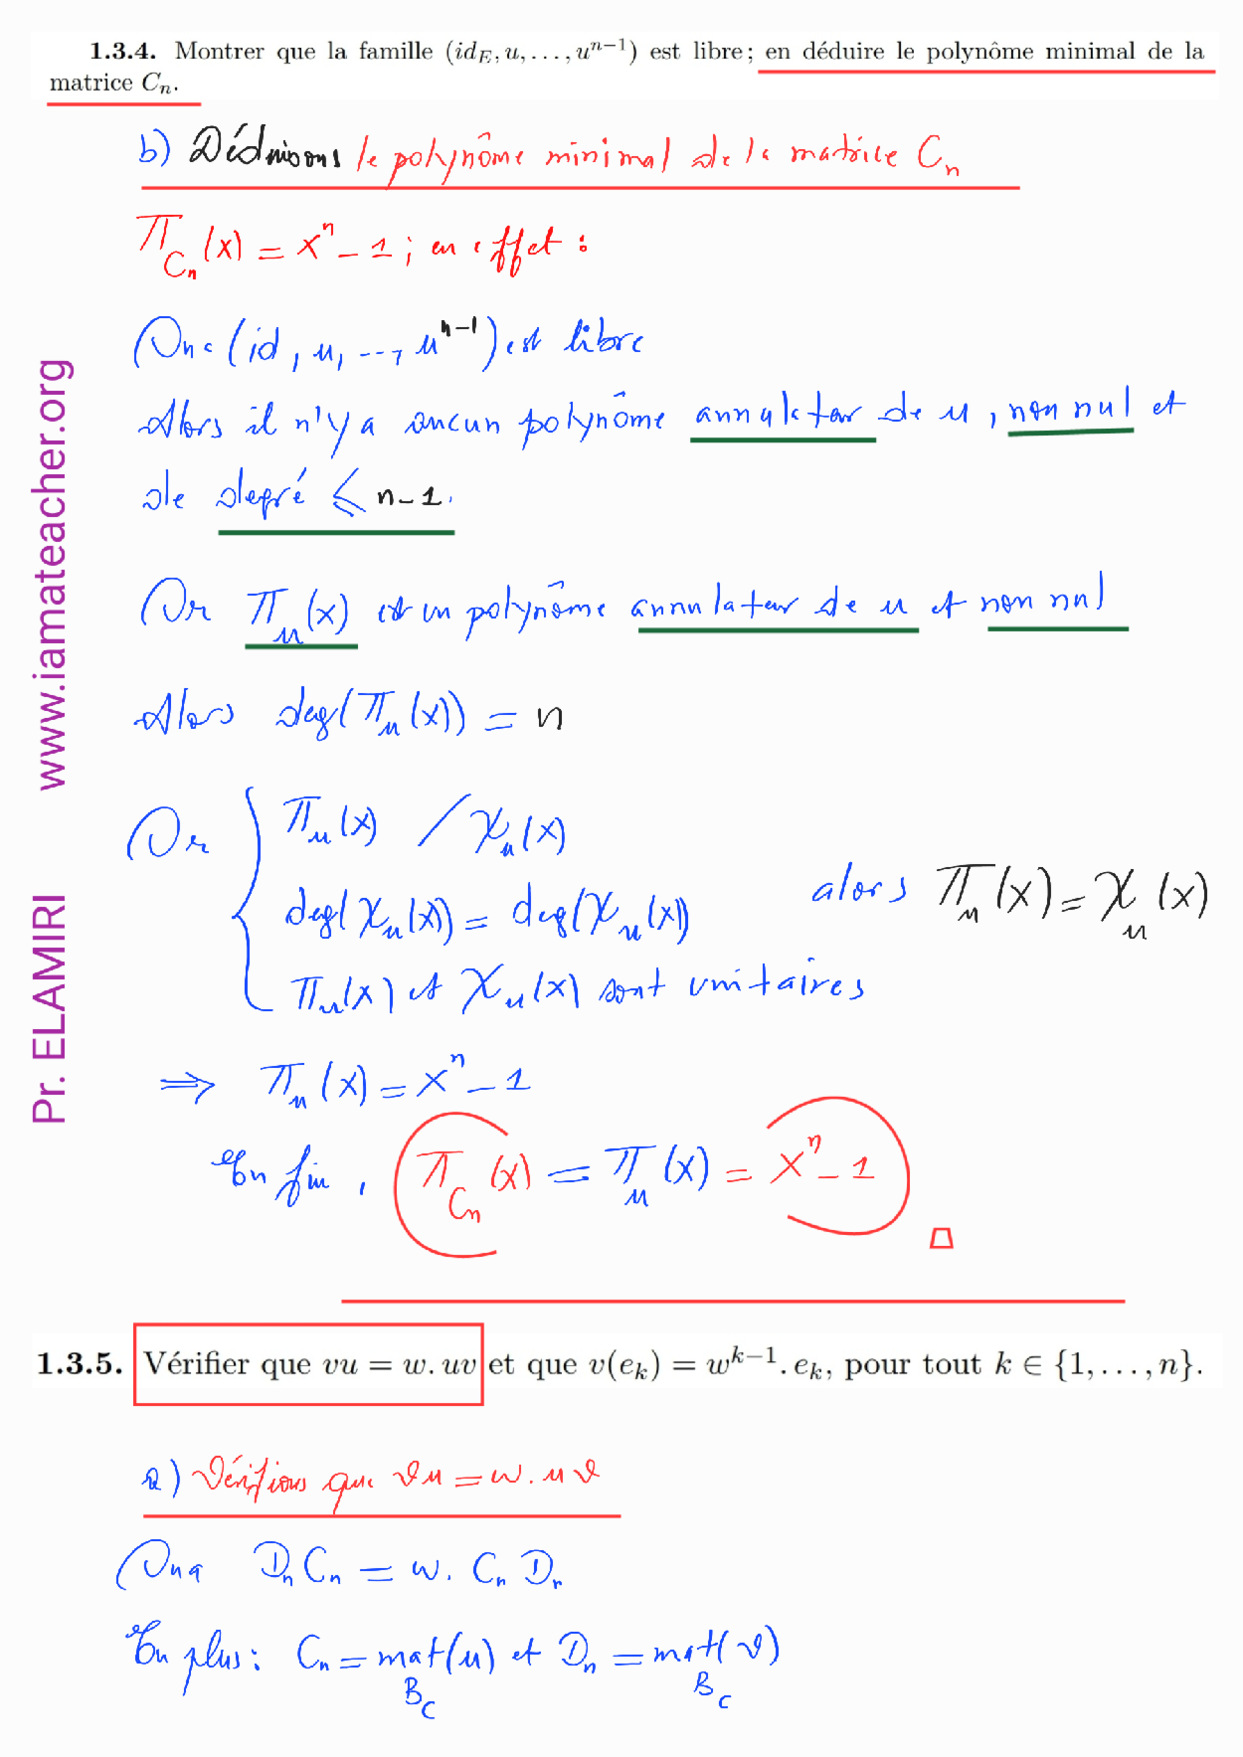 1.3.4. Montrer que la famille (id_E, u, ..., u^{n-1}) est libre ; en déduire le polynôme minimal de la
matrice C_n.
b) Déduisons le polynôme minimal de la matrice C_n
π_{C_n}(x) = x^n - 1 ; en effet :
On a (id, u, ---, u^{n-1}) est libre
Alors il n'y a aucun polynôme annulateur de u, non nul et
de degré ⩽ n-1.
Or π_u(x) est un polynôme annulateur de u et non nul
Alors deg(π_u(x)) = n
Or { π_u(x) / χ_u(x)
deg(χ_u(x)) = deg(χ_u(x))
π_u(x) et χ_u(x) sont unitaires
alors π_u(x) = χ_u(x)
⟹ π_u(x) = x^n - 1
En fin, π_{C_n}(x) = π_u(x) = x^n - 1
1.3.5. Vérifier que vu = w. uv et que v(e_k) = w^{k-1}. e_k, pour tout k ∈ {1, ..., n}.
a) Vérifions que vu = w. uv
On a D_n C_n = w. C_n D_n
En plus : C_n = mat_{B_C}(u) et D_n = mat_{B_C}(v)
Pr. ELAMIRI www.iamateacher.org